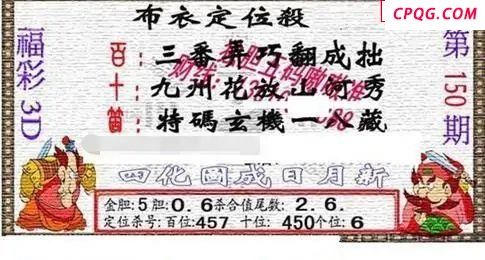 CPQG.COM
布衣定位殺
福彩3D
第150期
百 三番弄巧翻成拙
十 九州花放山河秀
笛 特碼玄機一 藏
四化國成日月新
金胆:5胆:0.6杀合值尾数:2.6.
定位杀号:百位:457 十位:450个位:6